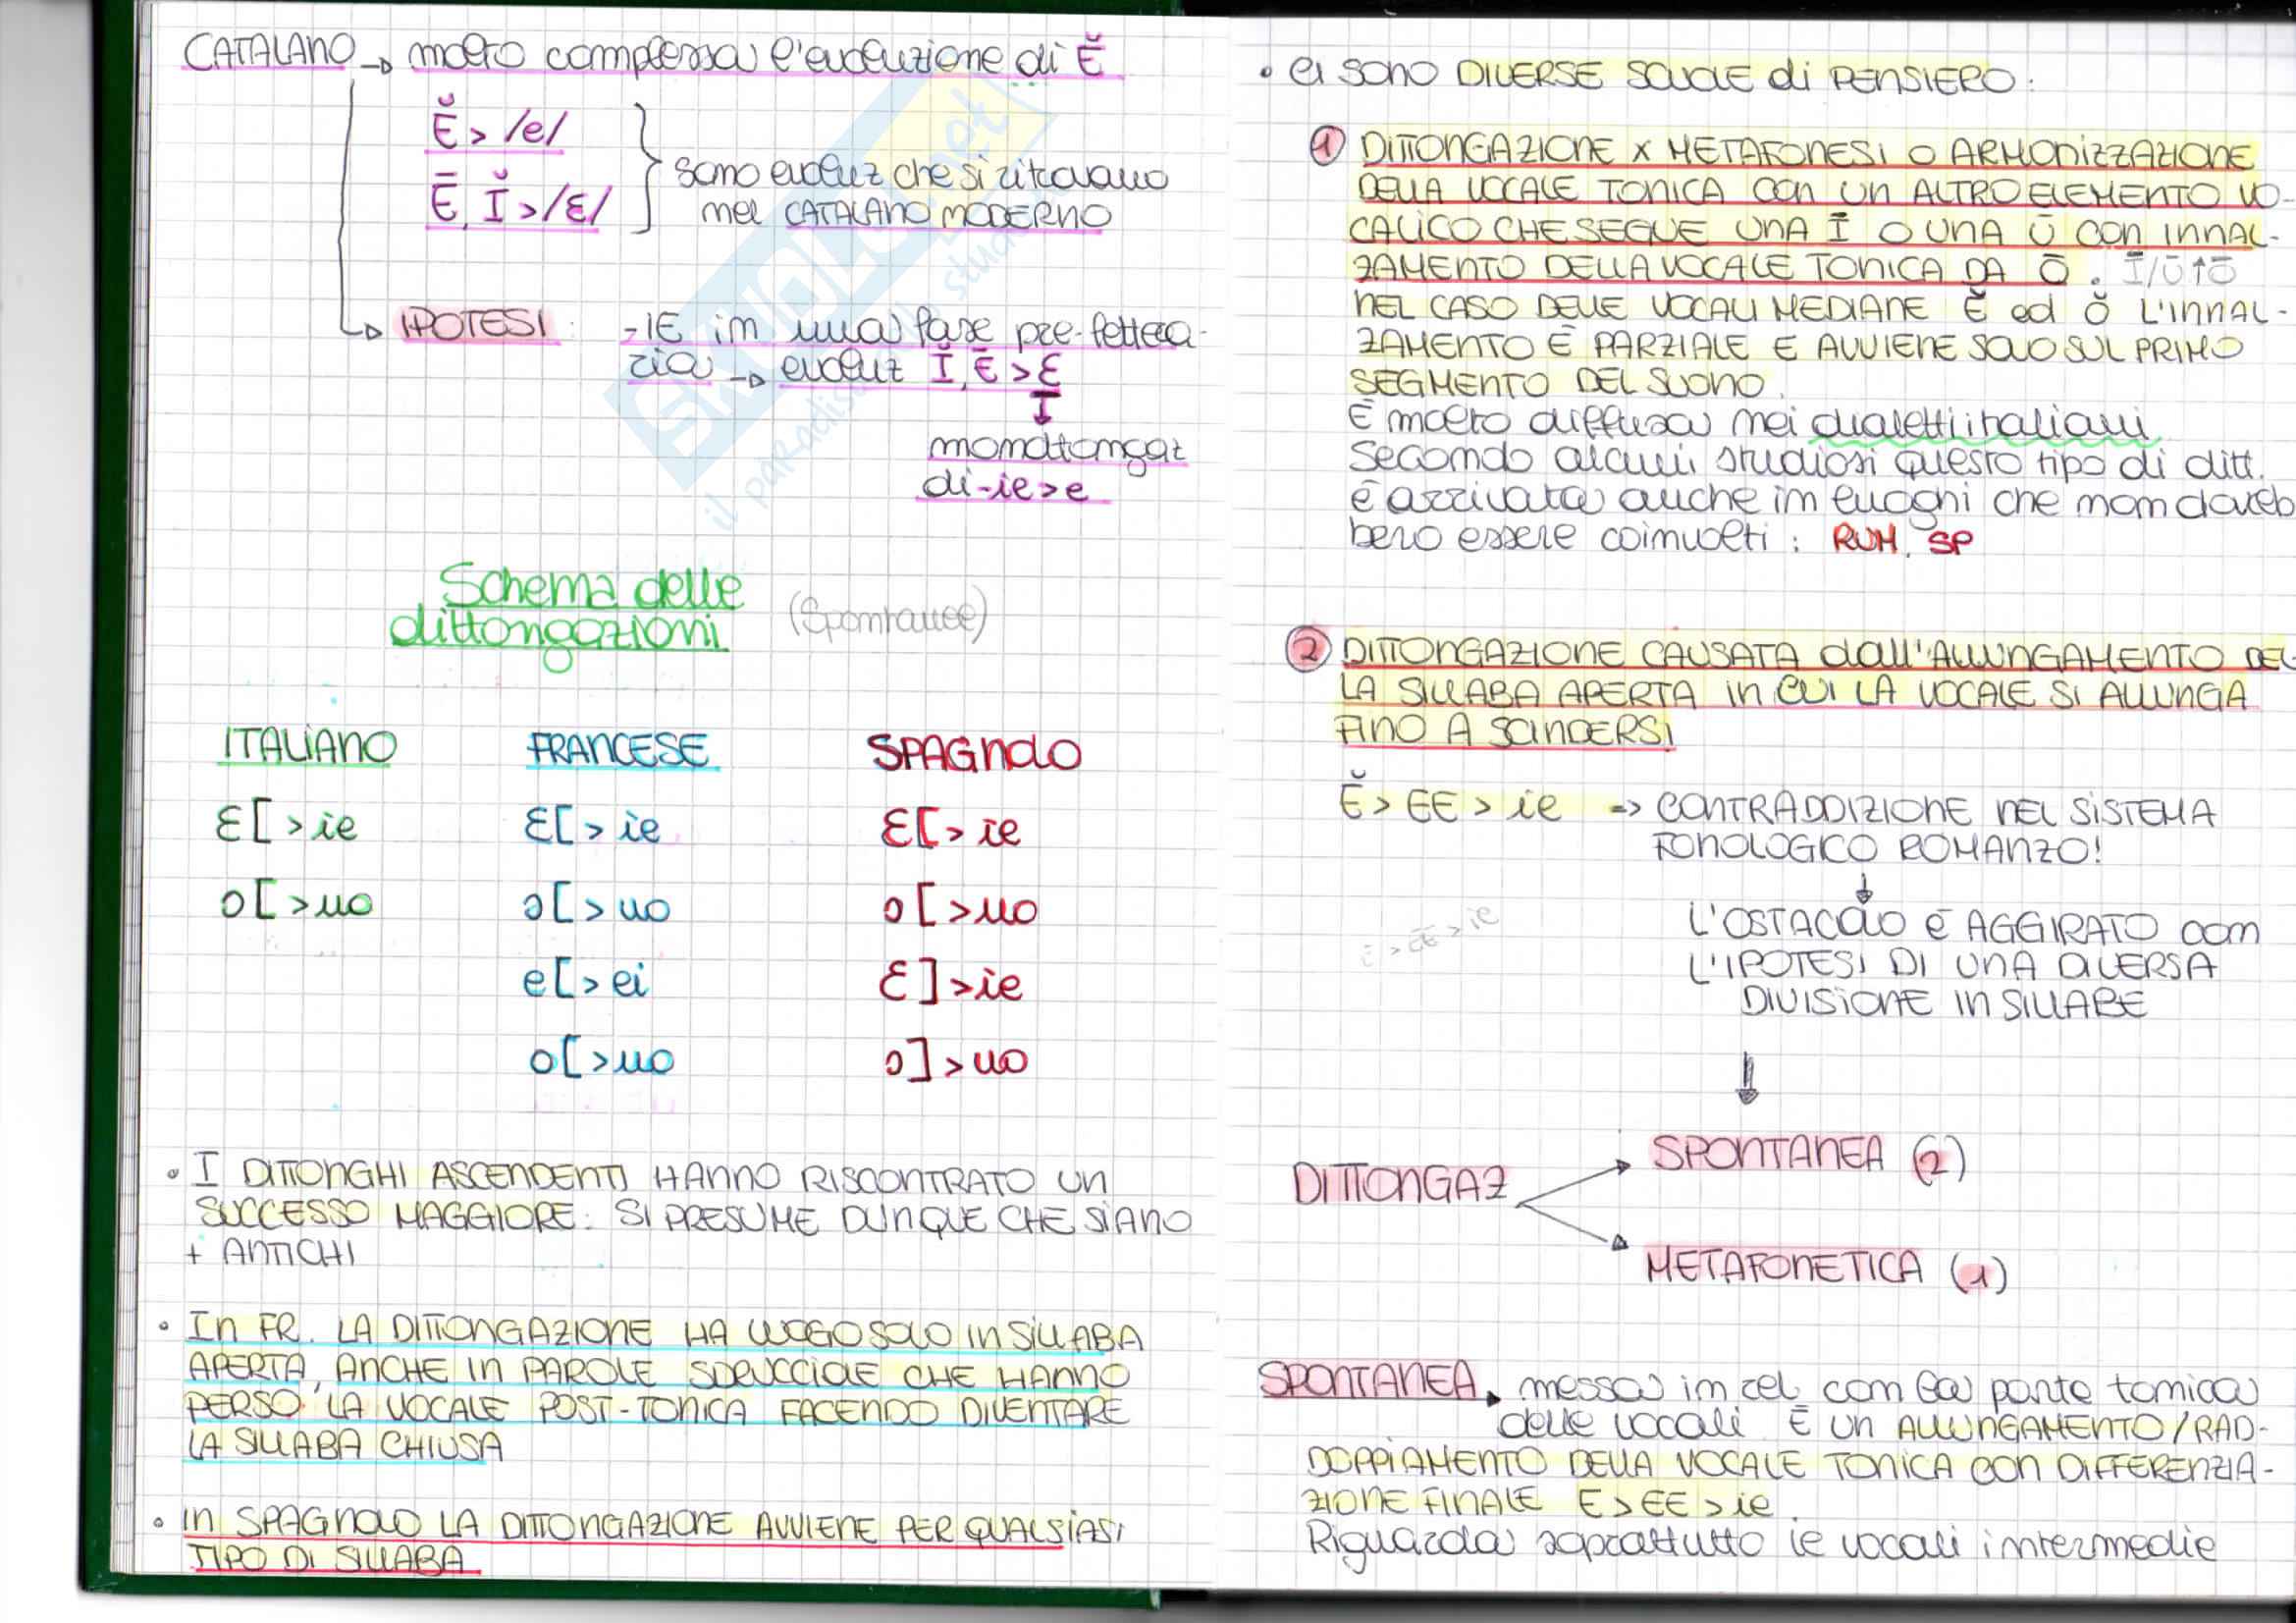 CATALANO → molto complessa l'evoluzione di Ĕ
Ĕ > /e/
Ē, Ĭ > /ɛ/
sono evoluz che si ritrovano
nel CATALANO MODERNO
IPOTESI: -IE in una fase pre-lettera-
ria → evoluz Ĭ, Ē > Ɛ
↓
monottongaz
di -ie > e
Schema delle
dittongazioni (Spontanee)
ITALIANO FRANCESE SPAGNOLO
Ɛ[ > ie Ɛ[ > ie Ɛ[ > ie
ɔ[ > uo ɔ[ > uo ɔ[ > uo
e[ > ei Ɛ] > ie
o[ > uo ɔ] > uo
• I DITTONGHI ASCENDENTI HANNO RISCONTRATO UN
SUCCESSO MAGGIORE: SI PRESUME DUNQUE CHE SIANO
+ ANTICHI
• In FR. LA DITTONGAZIONE HA LUOGO SOLO IN SILLABA
APERTA, ANCHE IN PAROLE SDRUCCIOLE CHE HANNO
PERSO LA VOCALE POST-TONICA FACENDO DIVENTARE
LA SILLABA CHIUSA
• In SPAGNOLO LA DITTONGAZIONE AVVIENE PER QUALSIASI
TIPO DI SILLABA
• Ci SONO DIVERSE SCUOLE di PENSIERO:
1 DITTONGAZIONE x METAFONESI O ARMONIZZAZIONE
DELLA VOCALE TONICA CON UN ALTRO ELEMENTO VO-
CALICO CHE SEGUE UNA Ī O UNA Ū CON INNAL-
ZAMENTO DELLA VOCALE TONICA DA Ō. Ī/Ū↑Ō
NEL CASO DELLE VOCALI MEDIANE Ĕ ed Ŏ L'INNAL-
ZAMENTO È PARZIALE E AVVIENE SOLO SUL PRIMO
SEGMENTO DEL SUONO.
È molto diffusa nei dialetti italiani
Secondo alcuni studiosi questo tipo di ditt.
è arrivata anche in luoghi che non dovreb
bero essere coinvolti: RUM, SP
2 DITTONGAZIONE CAUSATA dall'ALLUNGAMENTO DEL
LA SILLABA APERTA in CUI LA VOCALE SI ALLUNGA
FINO A SCINDERSI
Ĕ > EE > ie => CONTRADDIZIONE NEL SISTEMA
FONOLOGICO ROMANZO!
↓
L'OSTACOLO È AGGIRATO con
L'IPOTESI DI UNA DIVERSA
DIVISIONE IN SILLABE
Ē > EE > ie
⇓
DITTONGAZ
SPONTANEA (2)
METAFONETICA (1)
SPONTANEA → messa in rel con la parte tonica
delle vocali È UN ALLUNGAMENTO/RAD-
DOPPIAMENTO DELLA VOCALE TONICA CON DIFFERENZIA-
ZIONE FINALE E > EE > ie.
Riguarda soprattutto le vocali intermedie
SKUOLA.net
il paradiso dello studente